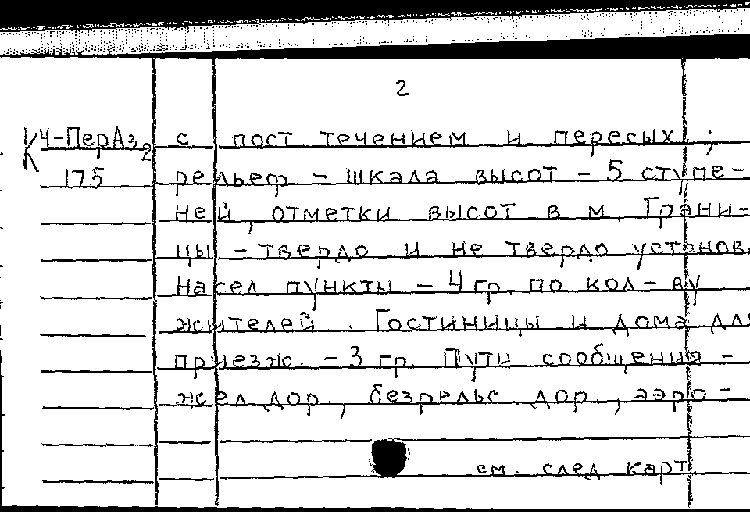 2
К Ч-ПерАз2 с пост течением и пересых ;
175 рельеф - шкала высот - 5 ступе-
ней, отметки высот в м. Грани-
цы - твердо и не твердо установ.
Насел пункты - 4 гр. по кол-ву
жителей. Гостиницы и дома для
приезж. - 3 гр. Пути сообщения -
жел дор, безрельс дор, аэро-
см. след карт